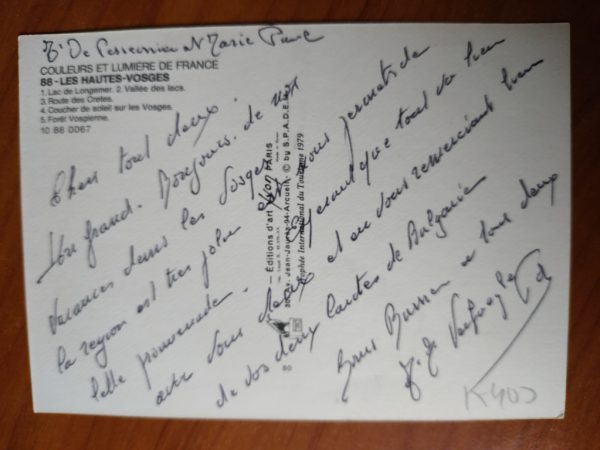 De Marie
COULEURS ET LUMIÈRE DE FRANCE
88 - LES HAUTES-VOSGES
1. Lac de Longemer. 2. Vallée des lacs.
3. Route des Crêtes.
4. Coucher de soleil sur les Vosges.
5. Forêt Vosgienne.
10 88 0067
Chers tout deux.
Un grand Bonjours. de nos
vacances dans les Vosges
la region est tres jolie et nous permets de
belle promenade. Esperant que tout va bien
avec vous deux et en vous remerciant bien
de vos deux cartes de Bulgarie
Bons Baisers a tous deux
— Éditions d'art yvon PARIS
Av. Jean-Jaurès-94-Arcueil- © by S.P.A.D.E.M.
Trophée International du Tourisme 1979
80
K400